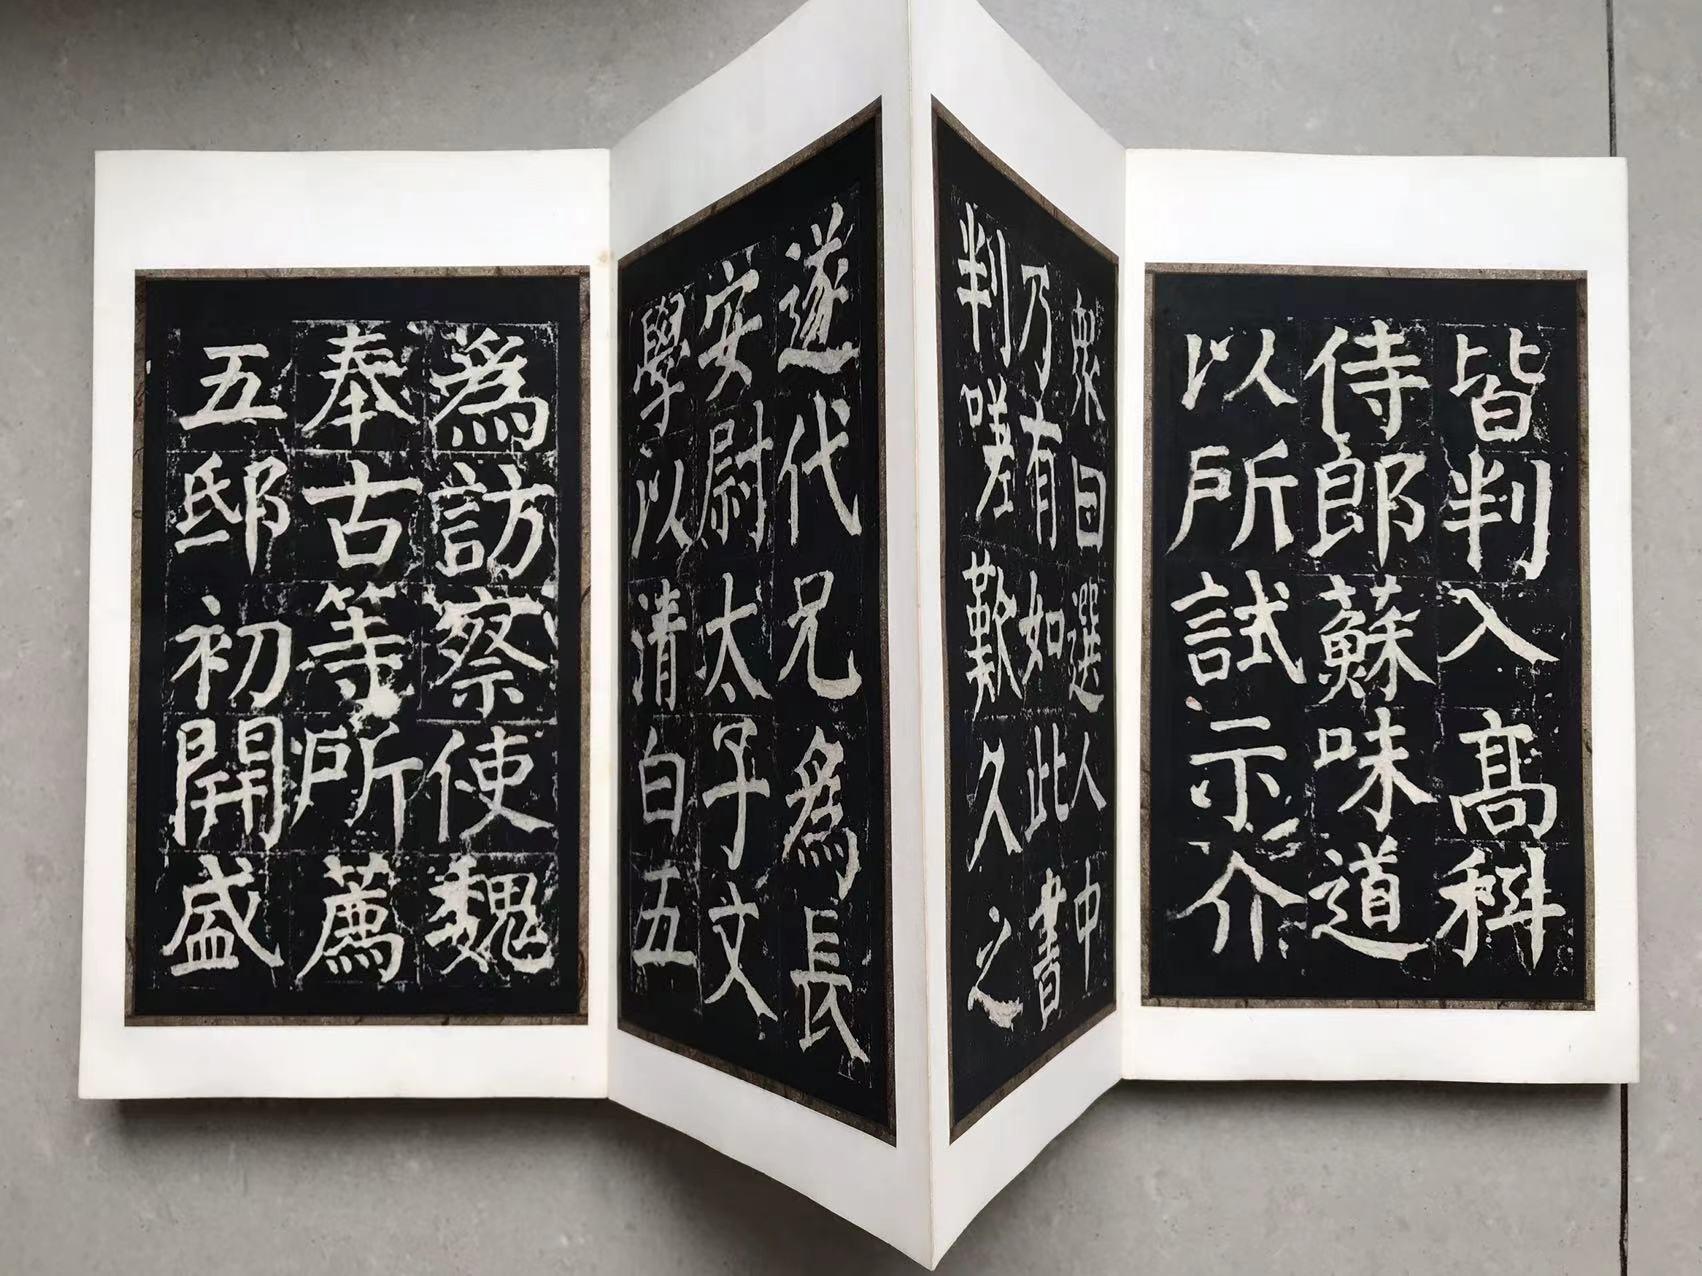 皆判入高科
侍郎蘇味道
以所試示介
衆曰選人中
乃有如此書
判嗟歎久之
遂代兄為長
安尉太子文
學以清白五
為訪察使魏
奉古等所薦
五邸初開盛